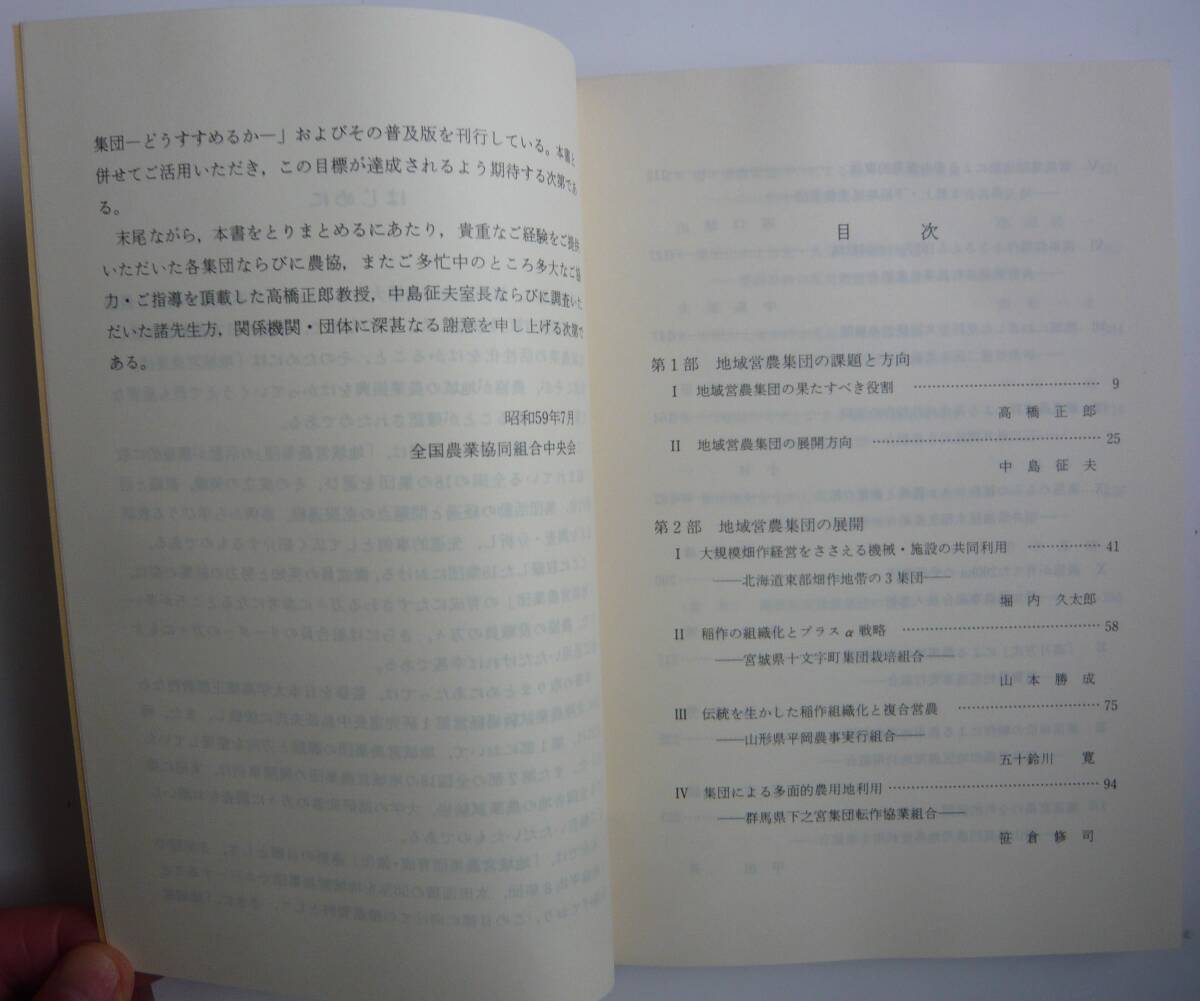 集団―どうすすめるか―」およびその普及版を刊行している。本書と
併せてご活用いただき，この目標が達成されるよう期待する次第であ
る。
末尾ながら，本書をとりまとめるにあたり，貴重なご経験をご提供
いただいた各集団ならびに農協，またご多忙中のところ多大なご協
力・ご指導を頂戴した高橋正郎教授，中島征夫室長ならびに調査いた
だいた諸先生方，関係機関・団体に深甚なる謝意を申し上げる次第で
ある。
昭和59年7月
全国農業協同組合中央会
目次
第1部 地域営農集団の課題と方向
I 地域営農集団の果たすべき役割 …… 9
高橋正郎
II 地域営農集団の展開方向 …… 25
中島征夫
第2部 地域営農集団の展開
I 大規模畑作経営をささえる機械・施設の共同利用 …… 41
――北海道東部畑作地帯の3集団――
堀内久太郎
II 稲作の組織化とプラスα戦略 …… 58
――宮城県十文字町集団栽培組合――
山本勝成
III 伝統を生かした稲作組織化と複合営農 …… 75
――山形県平岡農事実行組合――
五十鈴川寛
IV 集団による多面的農用地利用 …… 94
――群馬県下之宮集団転作協業組合――
笹倉修司